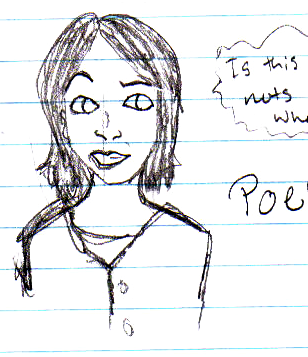 Is this
nuts
Poe